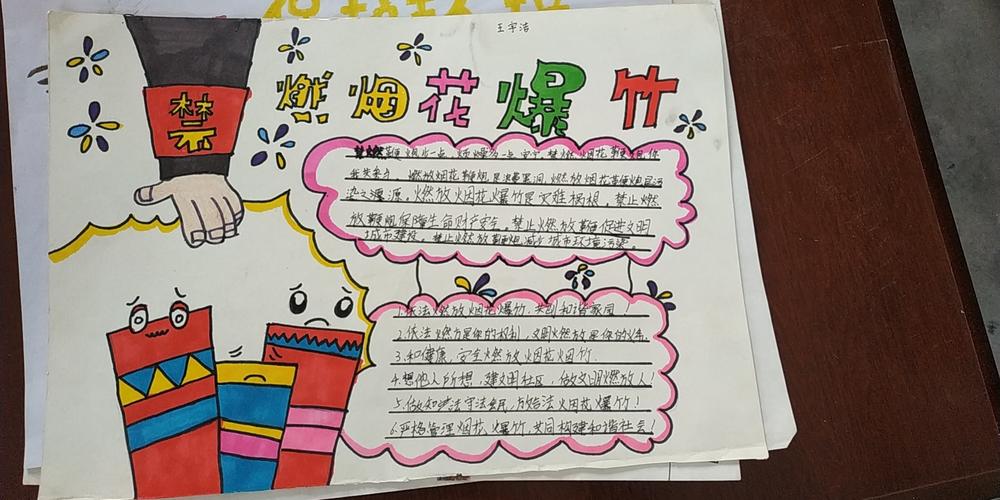 王宇洁
禁
燃烟花爆竹
禁燃鞭炮少一点,禁燃烟花鞭炮
燃放烟花鞭炮是浪费 燃放烟花
染之源源,燃放烟花爆竹是灾难祸根,禁止燃
放鞭炮保障生命财产安全。禁止燃放鞭促进文明
城市建设,禁止燃放鞭炮减少城市环境污染。
1.依法燃放烟花爆竹,共创和谐家园!
2.依法燃放是你的权利,文明燃放是你的义务
3.和健康,安全燃放烟花烟竹.
4.想他人所想,建文明社区,做文明燃放人!
5.做知法守法 民,放 法烟花爆竹!
6.严格管理烟花爆竹,共同构建和谐社会!